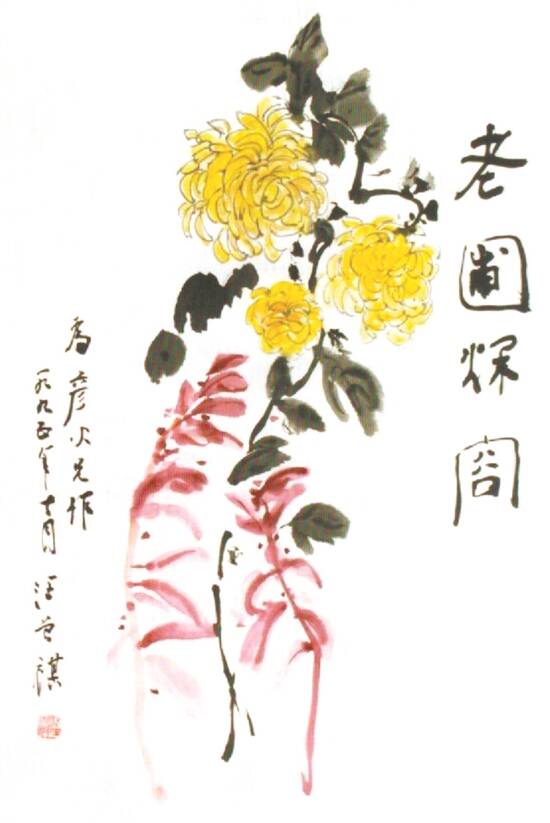 老圃秋容
為彦火兄作
一九九五年十一月 汪曾祺